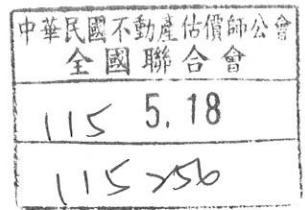 中華民國不動產估價師公會
全國聯合會
115 5.18
115256